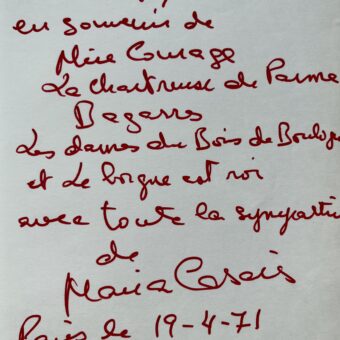 en souvenir de
Mère Courage
La chartreuse de Parme
Bagarres
Les dames du Bois de Boulogn
et Le borgne est roi
avec toute la sympathie
de
Maria Casarès
Paris le 19-4-71